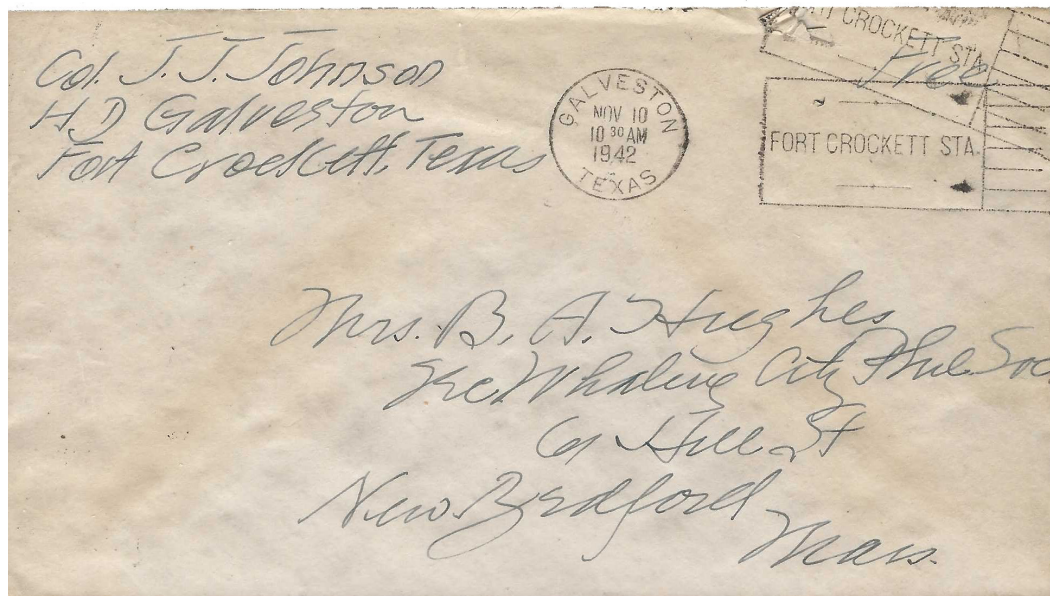 Col. J. J. Johnson
H D Galveston
Fort Crockett, Texas
GALVESTON
NOV 10
10 30 AM
1942
TEXAS
CROCKETT STA.
Free
FORT CROCKETT STA.
Mrs. B. A. Hughes
Whaling City Phil. Soc
Hill St
New Bedford
Mass.